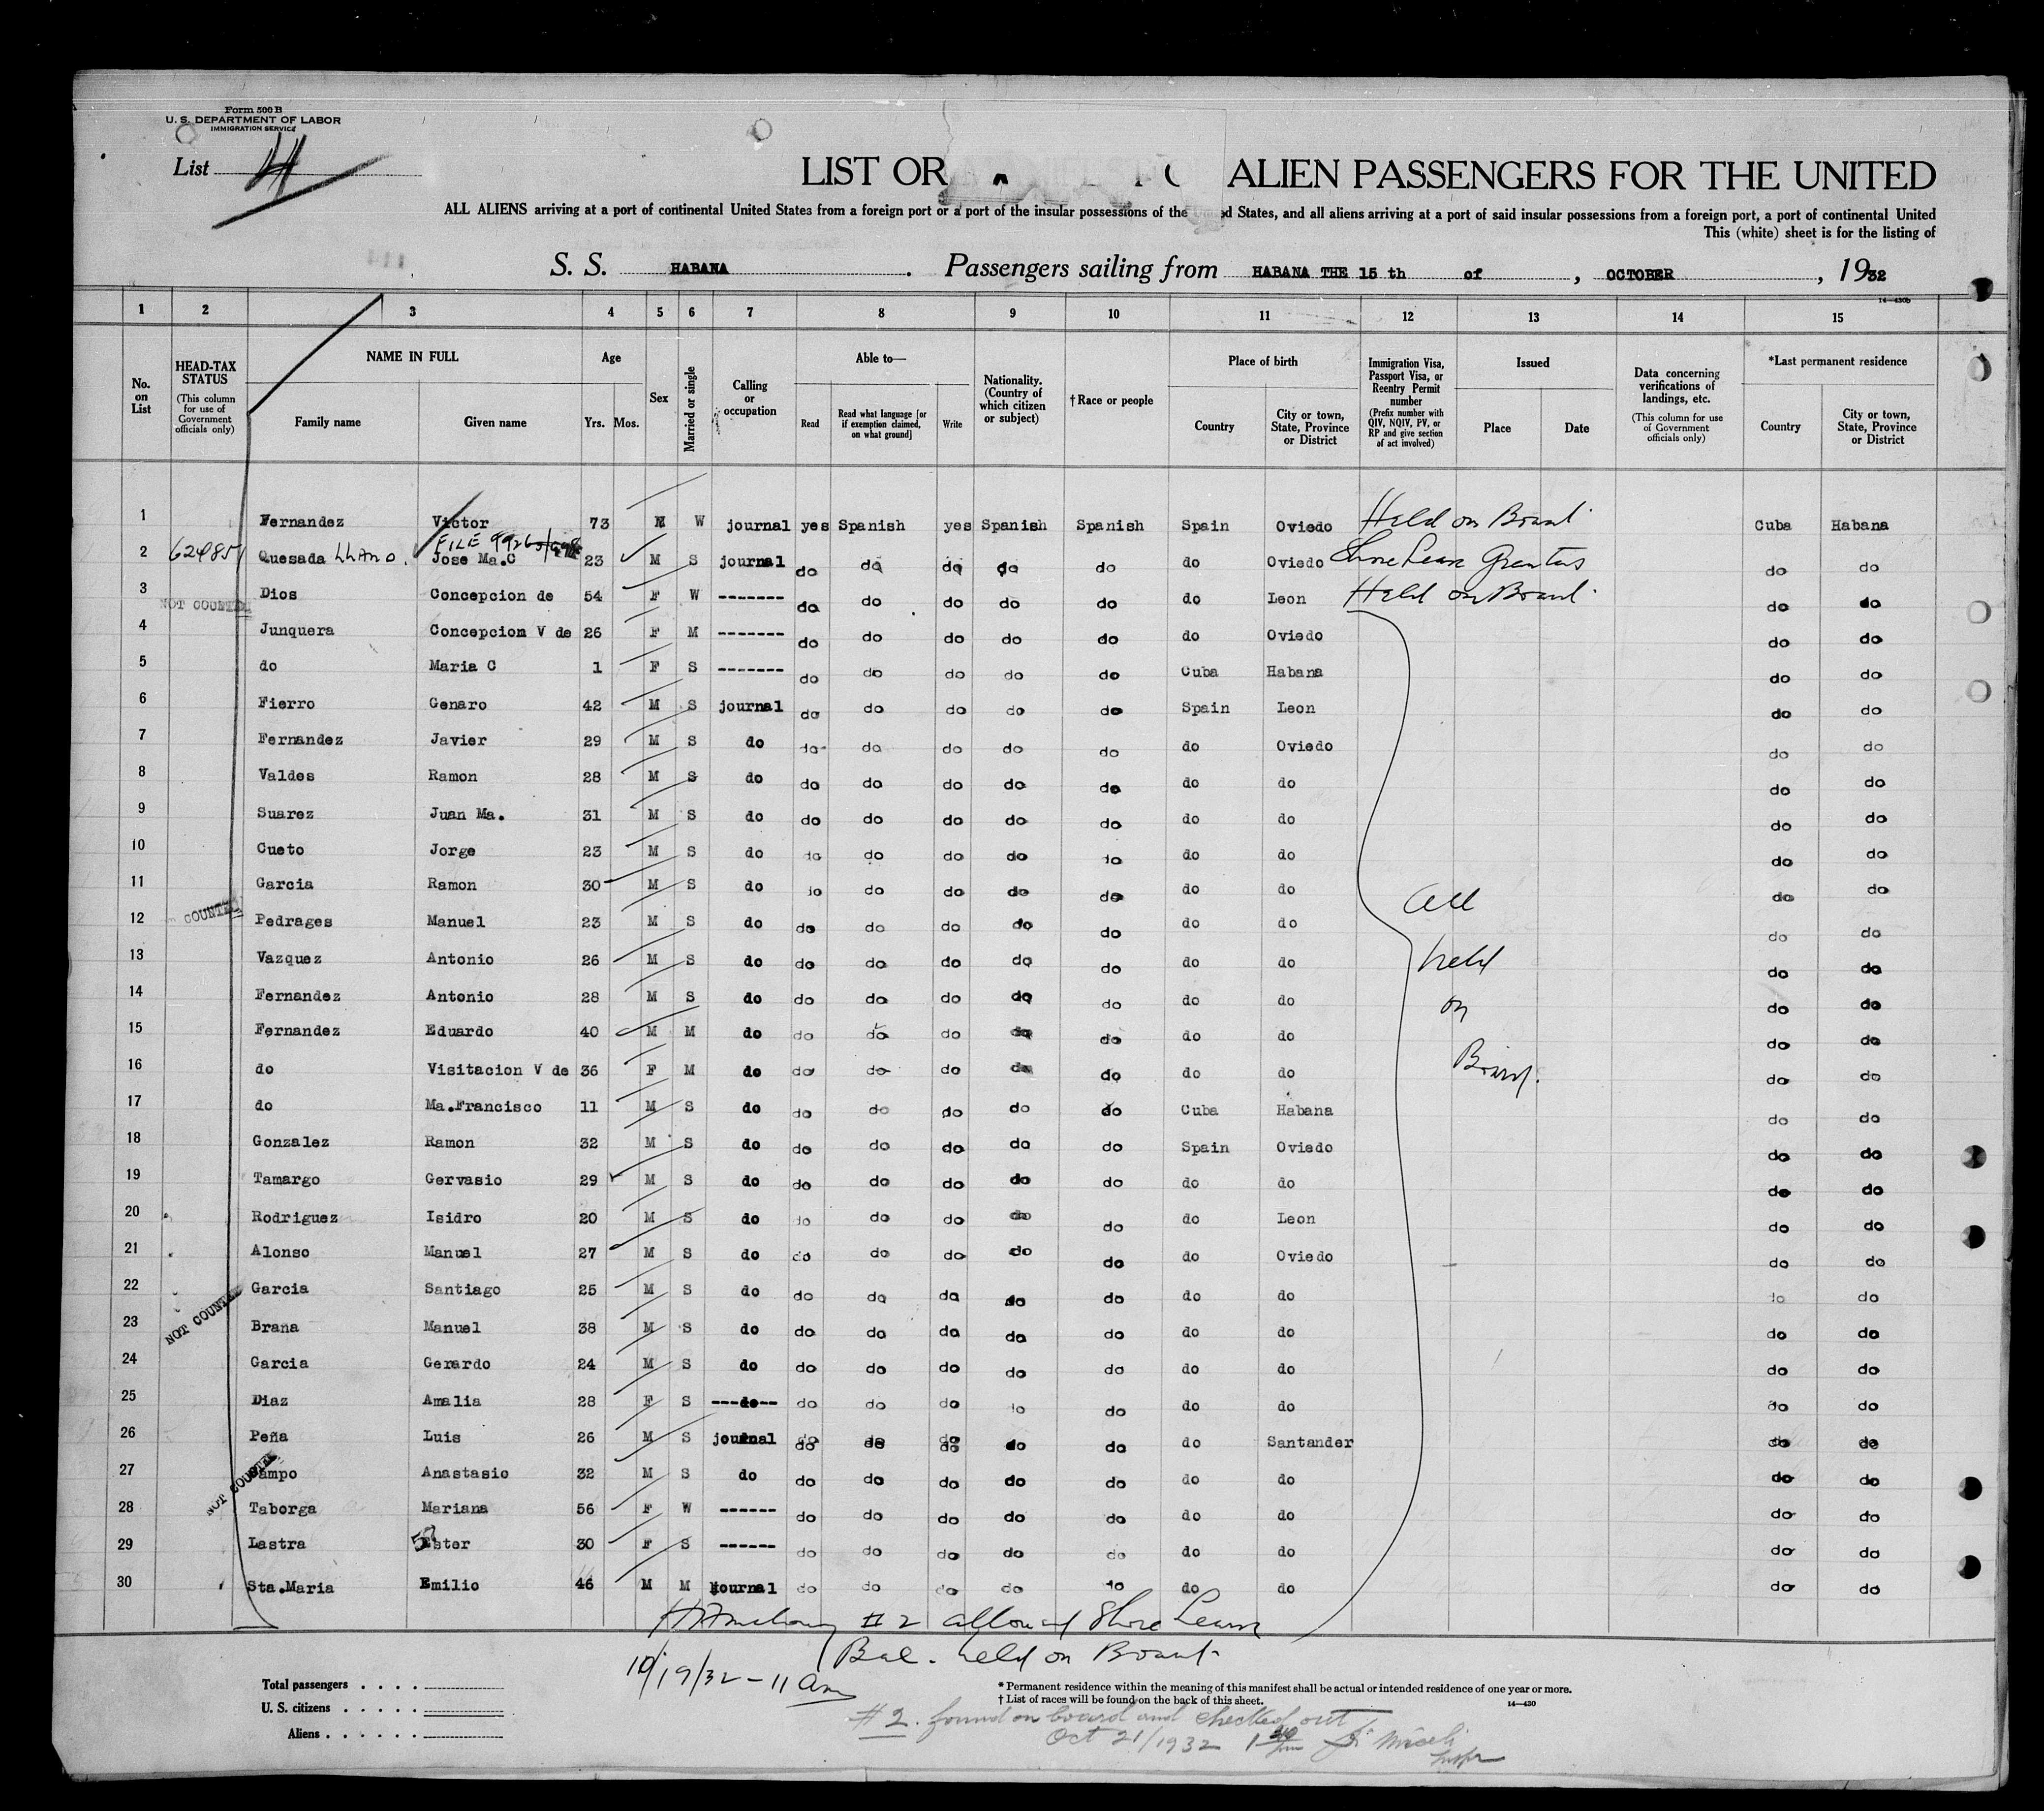 Form 500 B
U. S. DEPARTMENT OF LABOR
IMMIGRATION SERVICE
List 4
LIST OR ALIEN PASSENGERS FOR THE UNITED
ALL ALIENS arriving at a port of continental United States from a foreign port or a port of the insular possessions of the United States, and all aliens arriving at a port of said insular possessions from a foreign port, a port of continental United
This (white) sheet is for the listing of
S. S. HABANA . Passengers sailing from HABANA THE 15 th of , OCTOBER , 1932
14—430b
1 2 3 4 5 6 7 8 9 10 11 12 13 14 15
No. on List
HEAD-TAX STATUS (This column for use of Government officials only)
NAME IN FULL
Family name Given name
Age
Yrs. Mos.
Sex
Married or single
Calling or occupation
Able to—
Read Read what language [or if exemption claimed, on what ground] Write
Nationality. (Country of which citizen or subject)
†Race or people
Place of birth
Country City or town, State, Province or District
Immigration Visa, Passport Visa, or Reentry Permit number (Prefix number with QIV, NQIV, PV, or RP and give section of act involved)
Issued
Place Date
Data concerning verifications of landings, etc. (This column for use of Government officials only)
*Last permanent residence
Country City or town, State, Province or District
1 Fernandez Victor 73 M W journal yes Spanish yes Spanish Spanish Spain Oviedo Held on Board Cuba Habana
FILE
2 Quesada LLANO. Jose Ma.C 23 M S journal do do do do do do Oviedo Shore Leave Granted do do
3 NOT COUNTED Dios Concepcion de 54 F W ------- do do do do do do Leon Held on Board do do
4 Junquera Concepcion V de 26 F M ------- do do do do do do Oviedo do do
5 do Maria C 1 F S ------- do do do do do Cuba Habana do do
6 Fierro Genaro 42 M S journal do do do do do Spain Leon do do
7 Fernandez Javier 29 M S do do do do do do do Oviedo do do
8 Valdes Ramon 28 M S do do do do do do do do do do
9 Suarez Juan Ma. 31 M S do do do do do do do do do do
10 Cueto Jorge 23 M S do do do do do do do do do do
11 Garcia Ramon 30 M S do do do do do do do do do do
12 COUNTED Pedrages Manuel 23 M S do do do do do do do do All do do
13 Vazquez Antonio 26 M S do do do do do do do do held do do
14 Fernandez Antonio 28 M S do do do do do do do do on do do
15 Fernandez Eduardo 40 M M do do do do do do do do do do
16 do Visitacion V de 36 F M do do do do do do do do Board. do do
17 do Ma.Francisco 11 M S do do do do do do Cuba Habana do do
18 Gonzalez Ramon 32 M S do do do do do do Spain Oviedo do do
19 Tamargo Gervasio 29 M S do do do do do do do do do do
20 Rodriguez Isidro 20 M S do do do do do do do Leon do do
21 Alonso Manuel 27 M S do do do do do do do Oviedo do do
22 Garcia Santiago 25 M S do do do do do do do do do do
23 NOT COUNTED Brana Manuel 38 M S do do do do do do do do do do
24 Garcia Gerardo 24 M S do do do do do do do do do do
25 Diaz Amalia 28 F S ---do--- do do do do do do do do do
26 Peña Luis 26 M S journal do do do do do do Santander do do
27 NOT COUNTED Campo Anastasio 32 M S do do do do do do do do do do
28 Taborga Mariana 56 F W ------ do do do do do do do do do
29 Lastra Ester 30 F S ------ do do do do do do do do do
30 Sta.Maria Emilio 46 M M journal do do do do do do do do do
#2 allowed Shore Leave
Bal. held on Board
10/19/32 - 11 am
Total passengers . . . .
U. S. citizens . . . . .
Aliens . . . . . .
* Permanent residence within the meaning of this manifest shall be actual or intended residence of one year or more.
† List of races will be found on the back of this sheet. 14—430
#2. found on board and checked out
Oct 21/1932 Miceli
Inspr